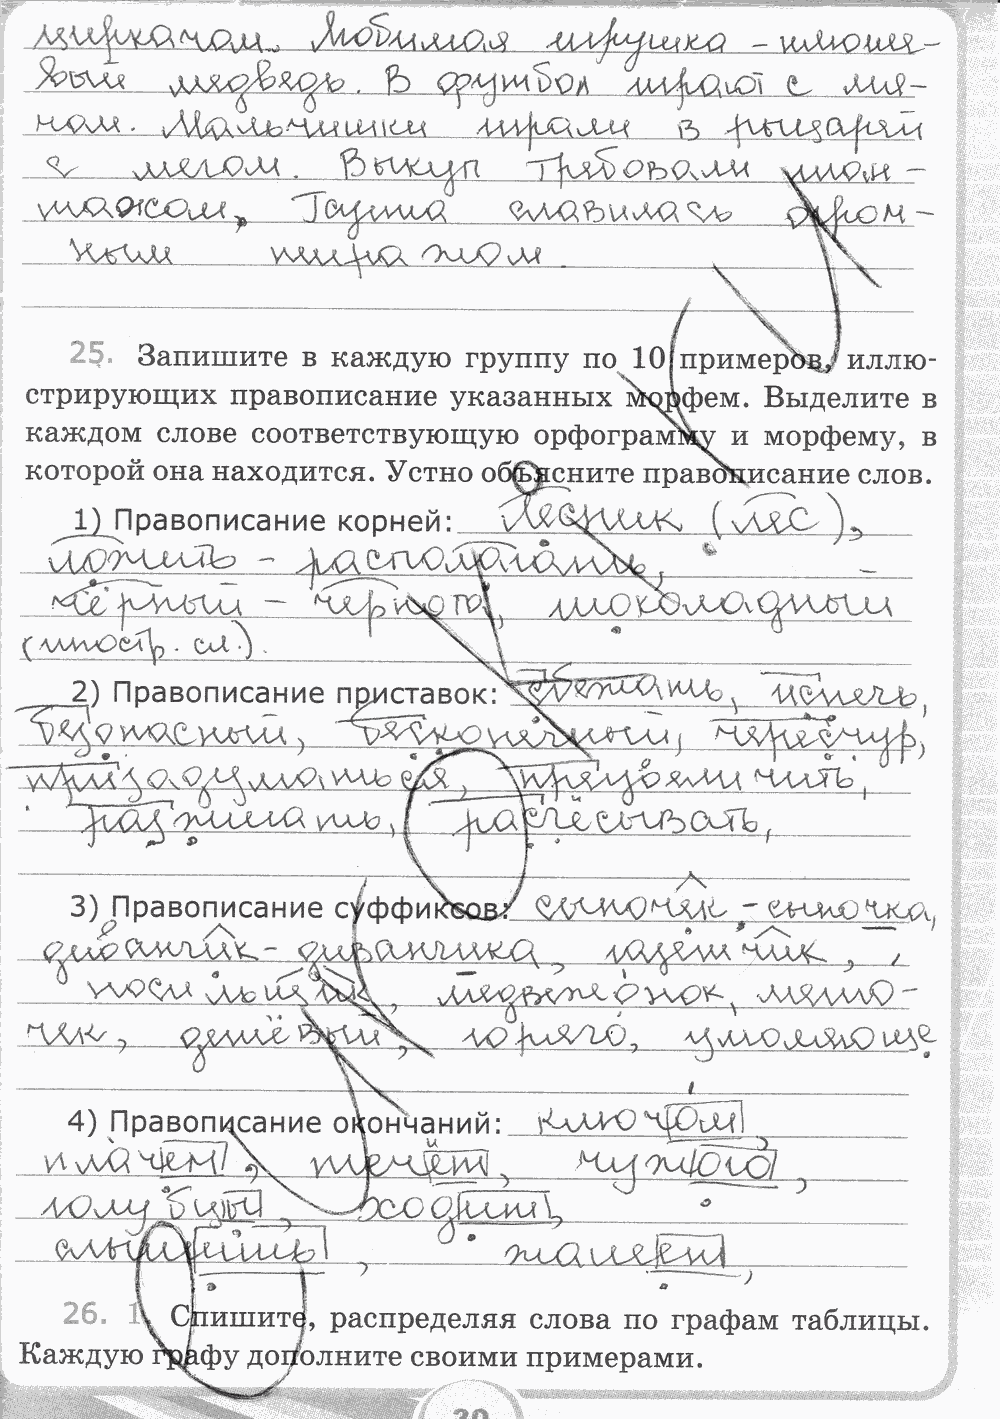 циркачам. Любимая игрушка – плюше-
вый медведь. В футбол играют с мя-
чом. Мальчишки играли в рыцарей
с мечом. Выкуп требовали шан-
тажом. Гауша славилась огром-
ным тиражом.
25. Запишите в каждую группу по 10 примеров, иллю-
стрирующих правописание указанных морфем. Выделите в
каждом слове соответствующую орфограмму и морфему, в
которой она находится. Устно объясните правописание слов.
1) Правописание корней: Лесник (лес),
ложить – располагать,
чёрный – чернота, шоколадный
(иностр. сл.).
2) Правописание приставок: сбежать, испечь,
безопасный, бесконечный, чересчур,
призадуматься, преувеличить,
разжигать, расчёсывать,
3) Правописание суффиксов: сыночек – сыночка,
диванчик – диванчика, газетчик,
носильщик, медвежонок, мешо-
чек, дешёвый, горячо, умоляюще
4) Правописание окончаний: ключом,
плачем, течёт, чужого
голубцы, ходит,
слышишь, жалеет,
26. 1. Спишите, распределяя слова по графам таблицы.
Каждую графу дополните своими примерами.